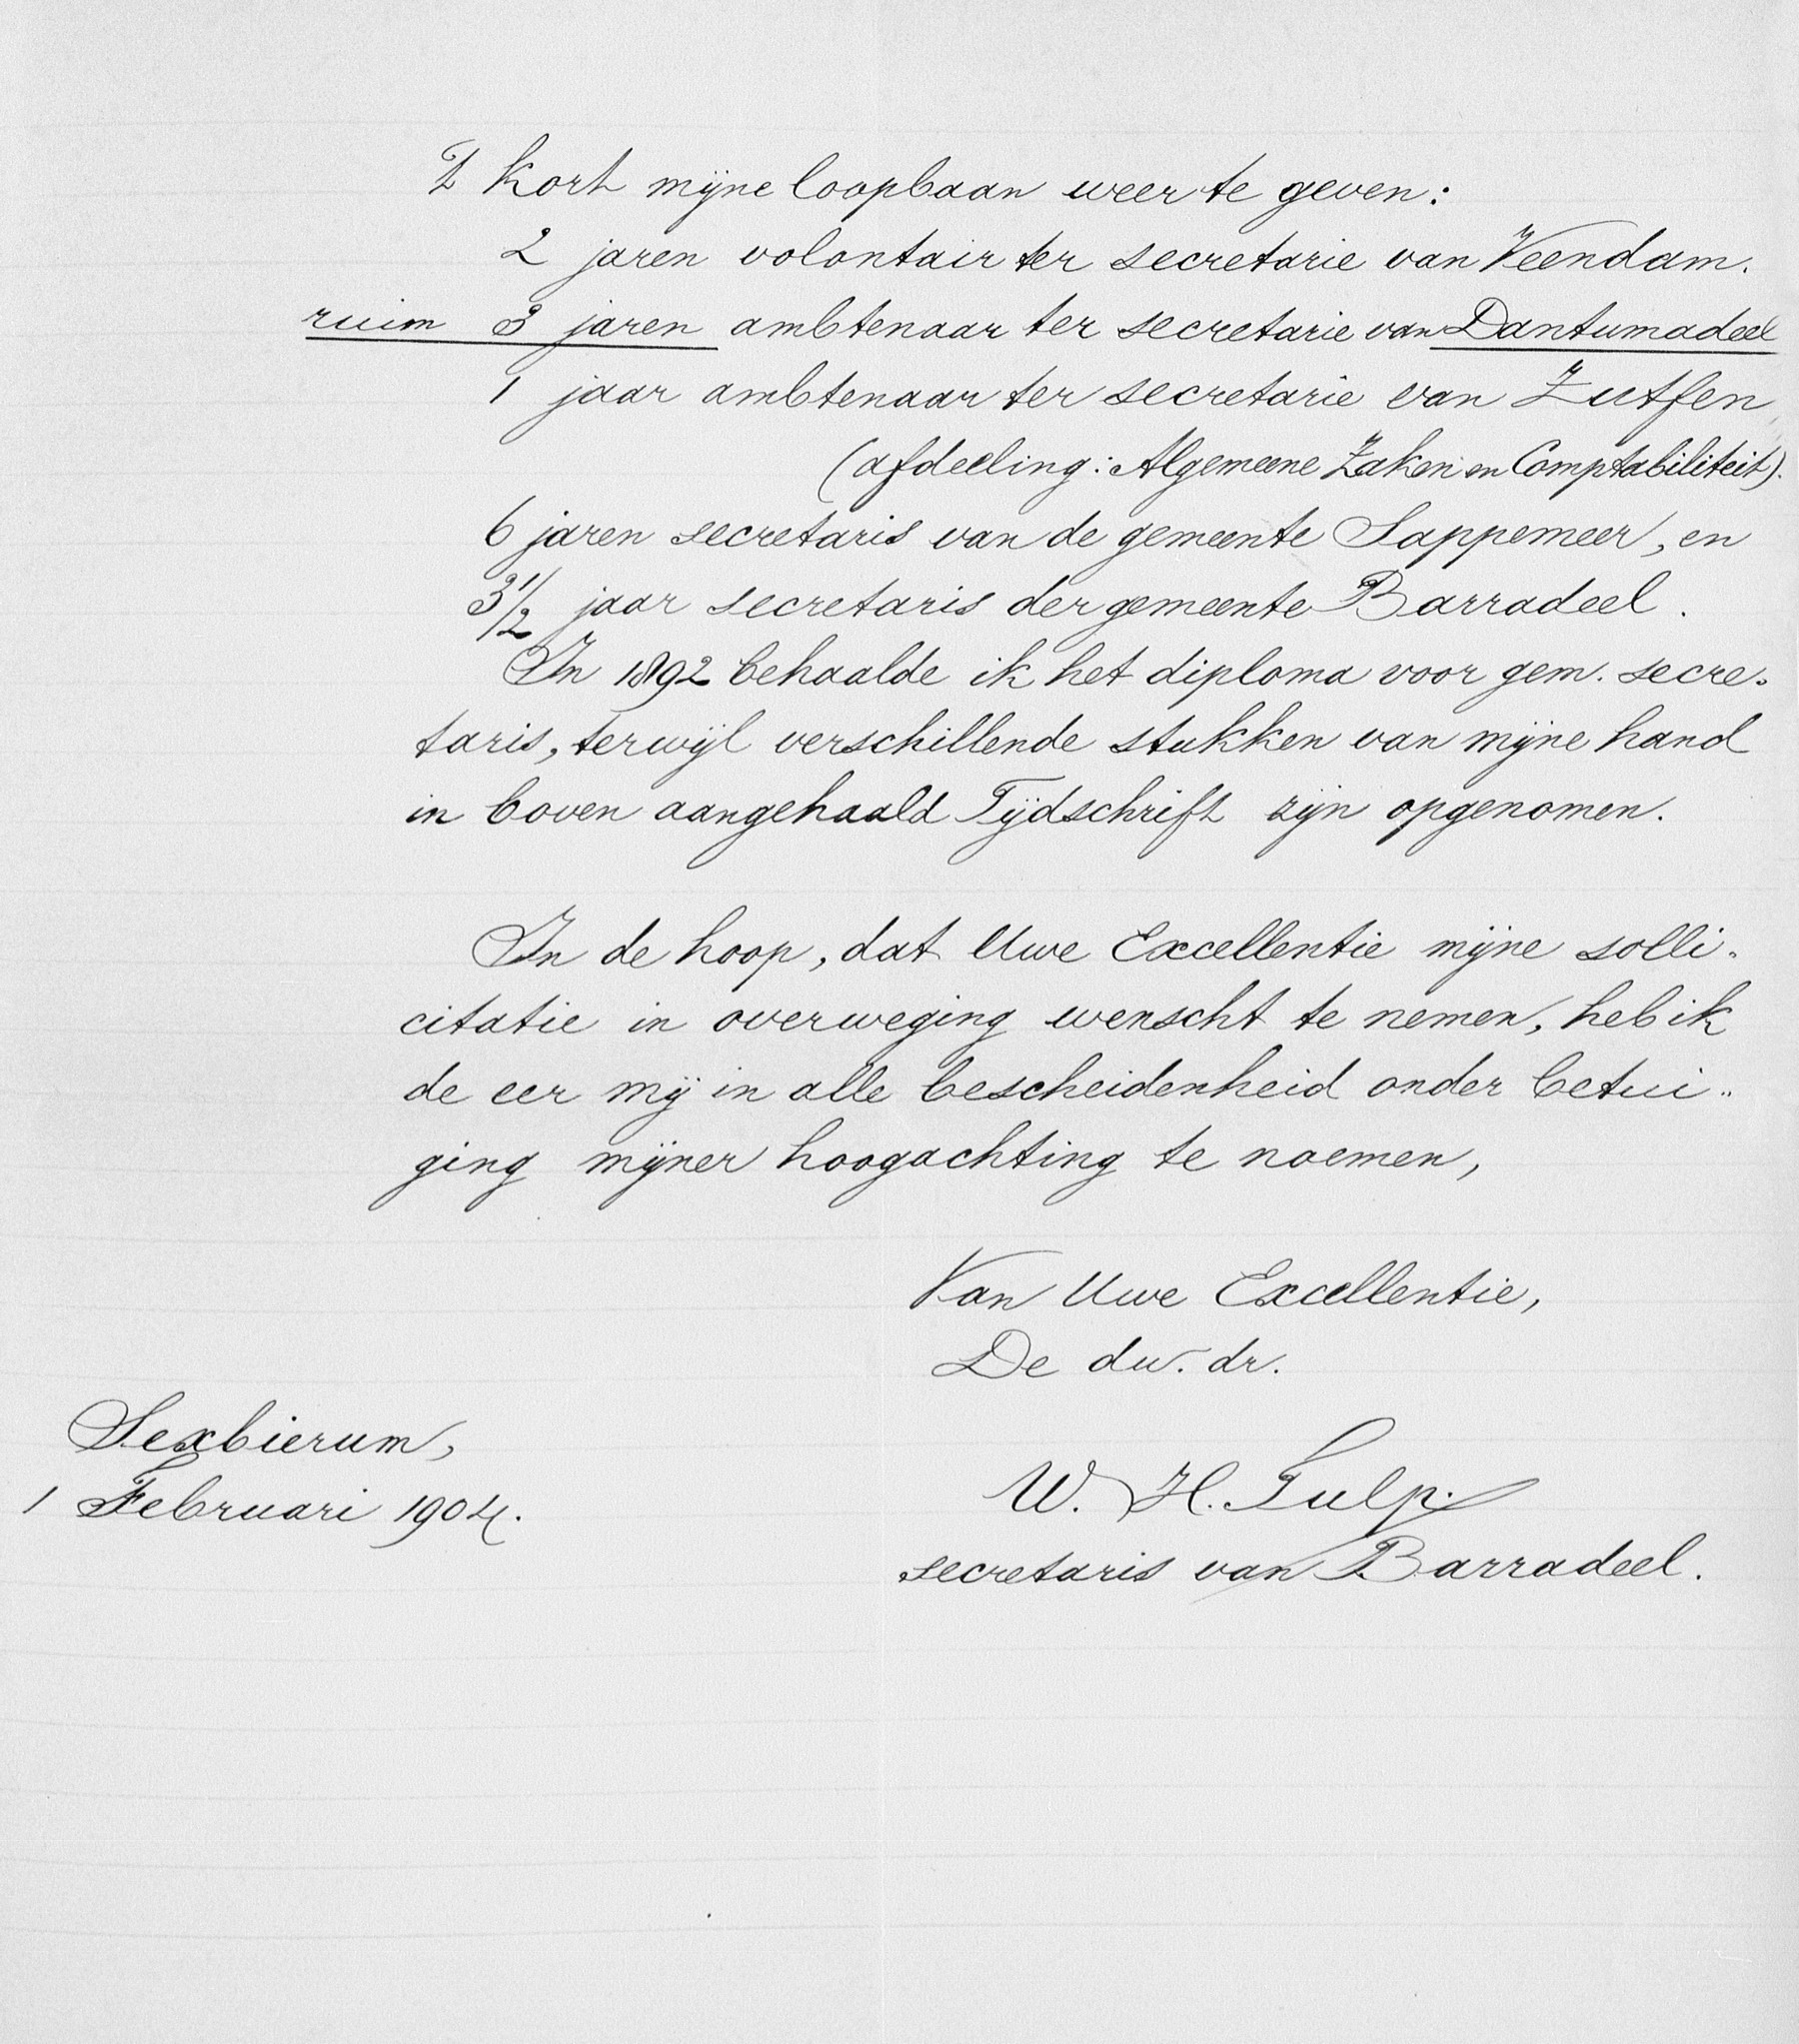 't Kort mijne loopbaan weer te geven:
2 jaren volontair ter secretarie van Veendam.
ruim 3 jaren ambtenaar ter secretarie van Dantumadeel
1 jaar ambtenaar ter secretarie van Zutfen
(afdeeling: Algemeene Zaken en Comptabiliteit).
6 jaren secretaris van de gemeente Sappemeer, en
3 1/2 jaar secretaris der gemeente Barradeel.
In 1892 behaalde ik het diploma voor gem. secre-
taris, terwijl verschillende stukken van mijne hand
in boven aangehaald Tijdschrift zijn opgenomen.
In de hoop, dat Uwe Excellentie mijne solli-
citatie in overweging wenscht te nemen, heb ik
de eer mij in alle bescheidenheid onder betui-
ging mijner hoogachting te noemen,
Van Uwe Excellentie,
De dw. dr.
Sexbierum,
1 Februari 1904.
W. H. Tulp.
secretaris van Barradeel.